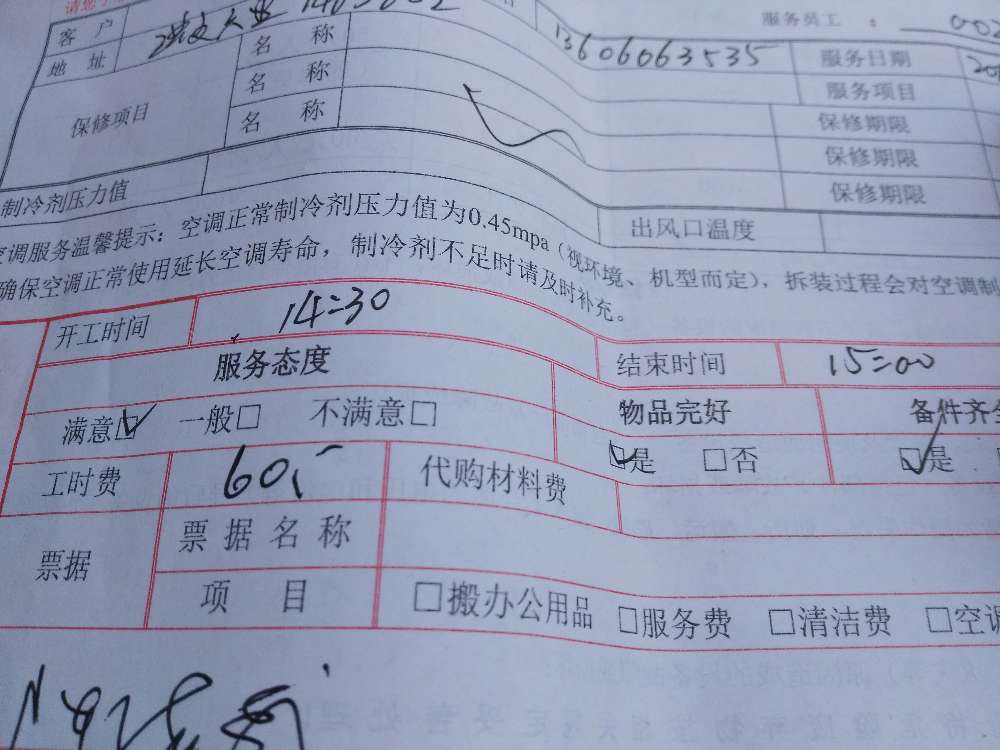 服务员工：
客户
地址 名称 13606063535 服务日期
保修项目 名称 服务项目
名称 保修期限
保修期限
制冷剂压力值 保修期限
出风口温度
空调服务温馨提示：空调正常制冷剂压力值为0.45mpa（视环境、机型而定），拆装过程会对空调制
确保空调正常使用延长空调寿命，制冷剂不足时请及时补充。
开工时间 14:30 结束时间 15:00
服务态度 物品完好 备件齐全
满意☑ 一般□ 不满意□ ☑是 □否 ☑是
工时费 60.- 代购材料费
票据 票据名称
项目 □搬办公用品 □服务费 □清洁费 □空调